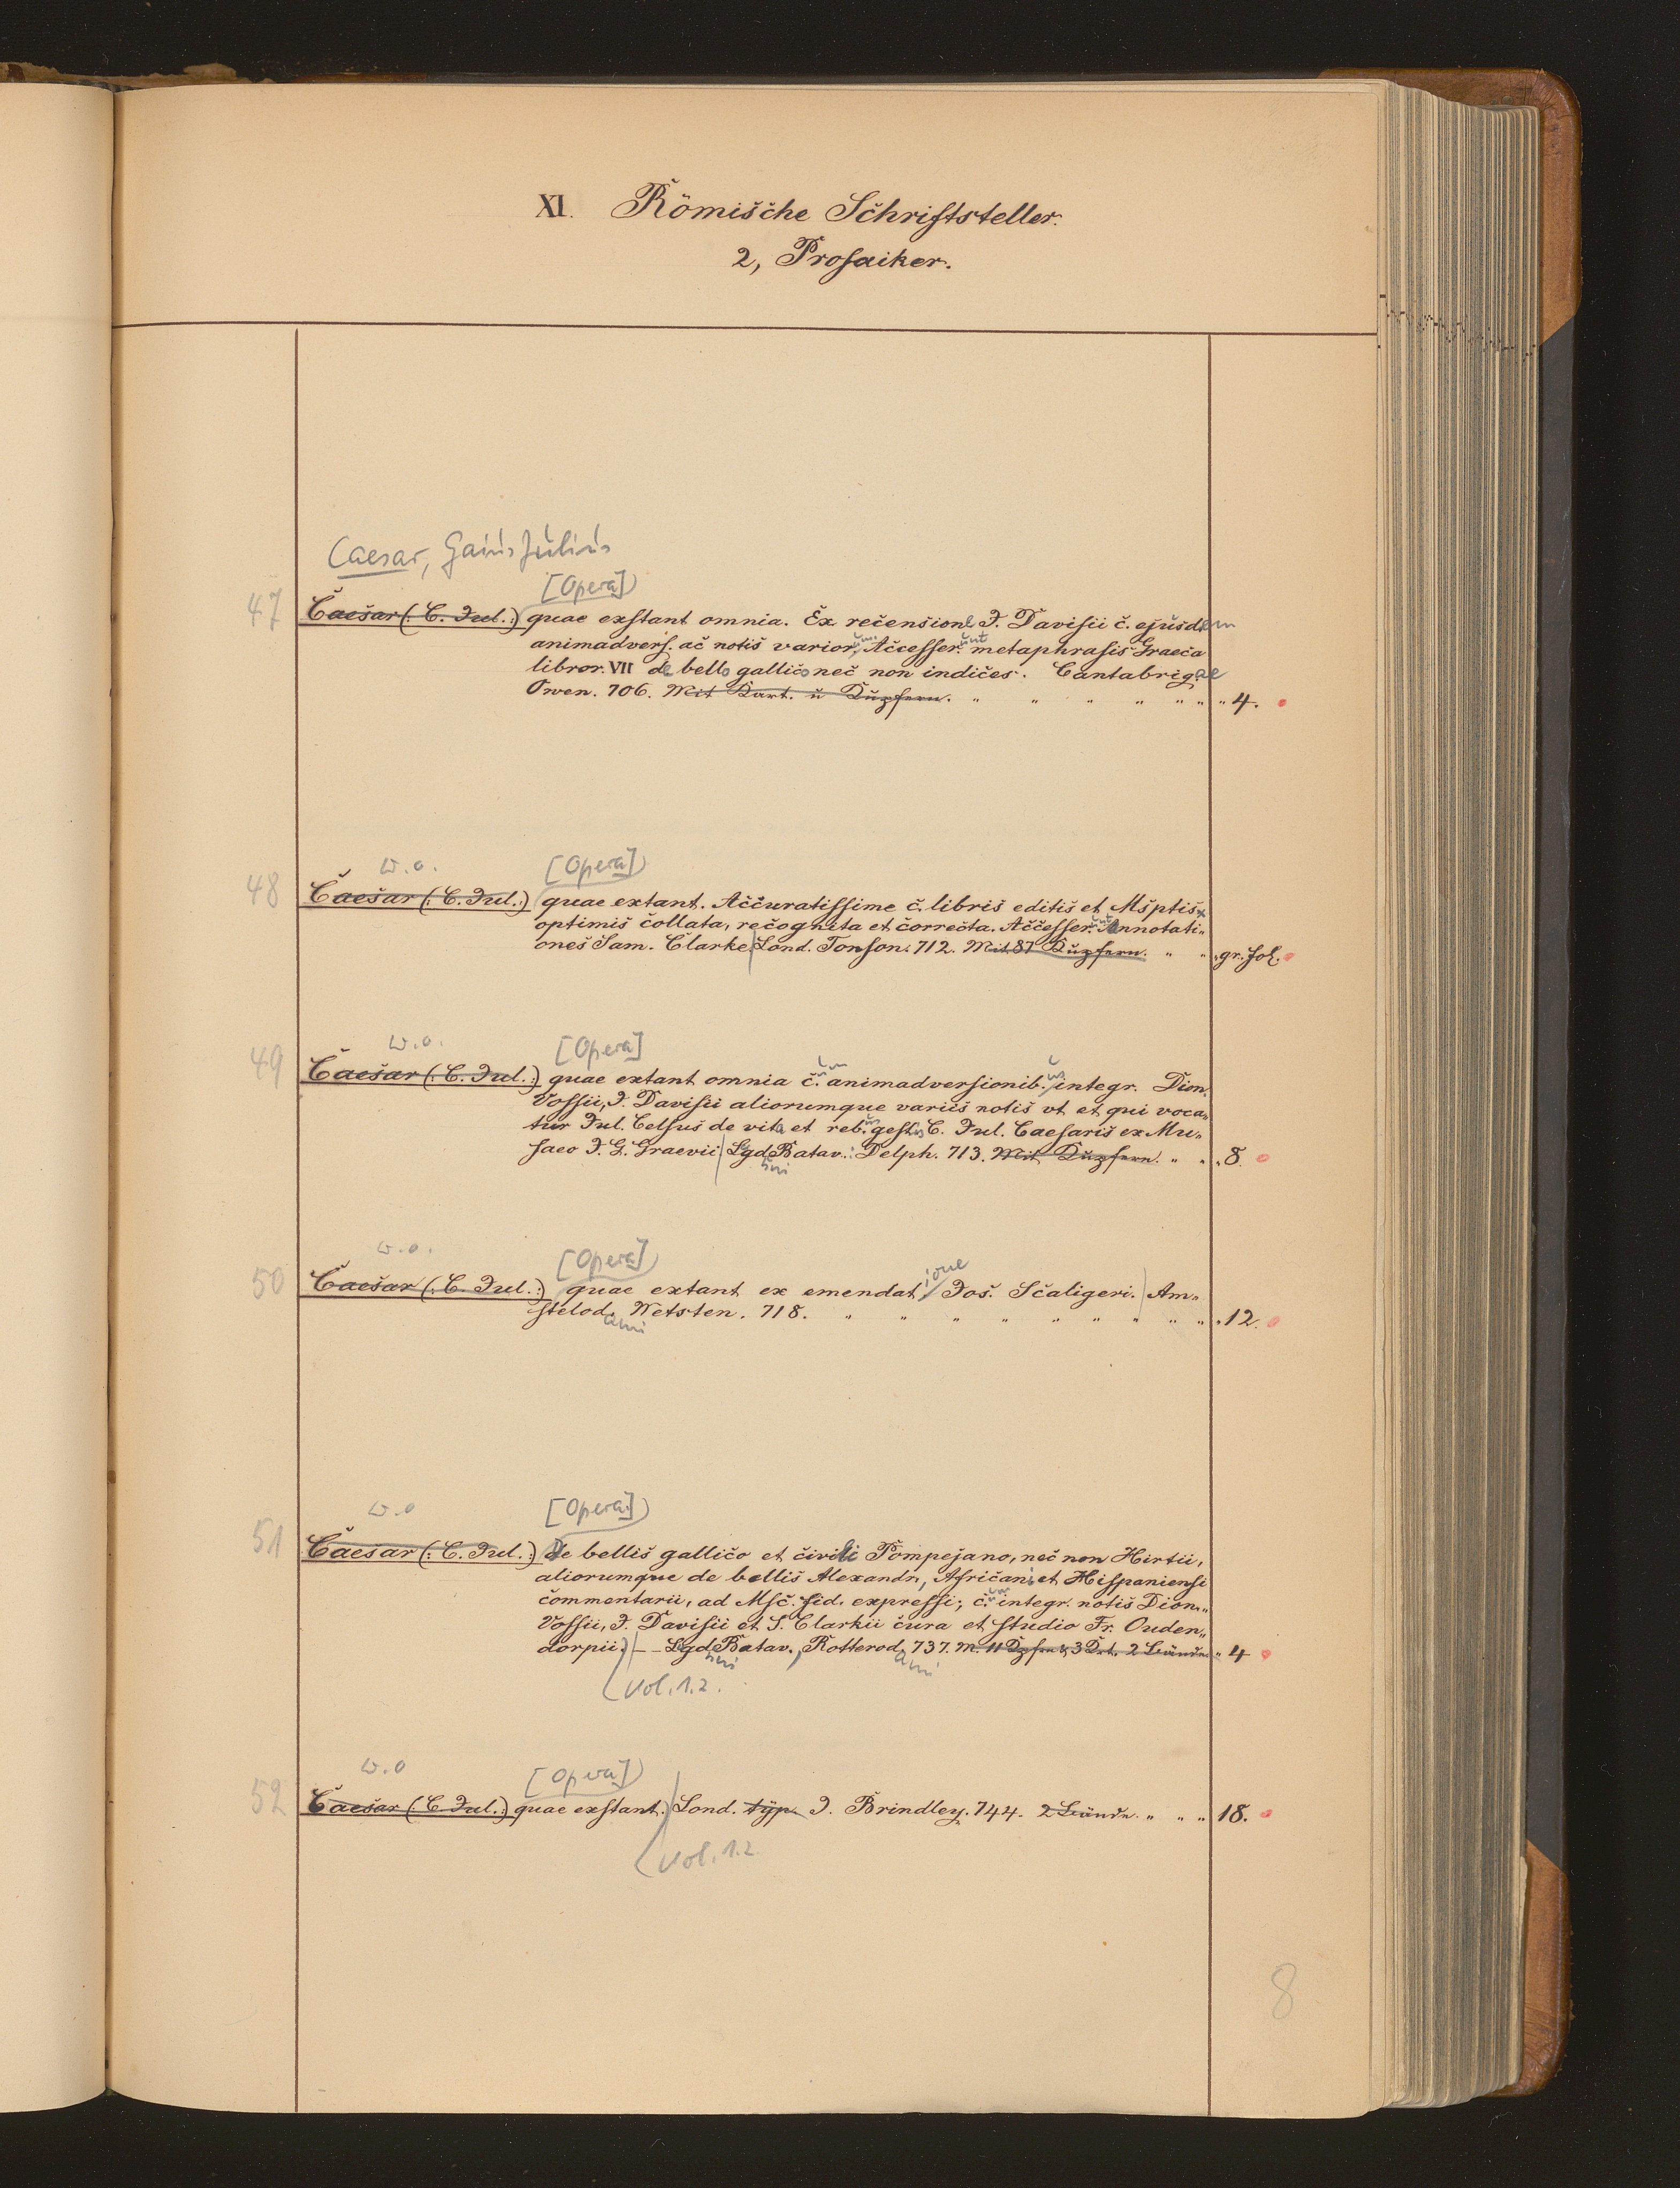 XI. Römische Schriftsteller.
2, Prosaiker.
Caesar, Gaius Julius
[Opera]
47 Caesar (: C. Jul. :) quae exstant omnia. Ex recensione J. Davisii c. ejusdem
animadvers. ac notis variorum. Accesserunt metaphrasis Graeca
libror. VII de bello gallico nec non indices. Cantabrigae
Owen. 706. Mit Kart. u Kupfern. " " " " " " " 4.
w. o. [Opera]
48 Caesar (: C. Jul. :) quae extant. Accuratissime c. libris editis et Msptis
optimis collata, recognita et correcta. Accesserunt Annotati-
ones Sam. Clarke Lond. Tonson. 712. Mit 87 Kupfern. " " " gr. fol.
w. o. [Opera]
49 Caesar (: C. Jul. :) quae extant omnia c. um animadversionib. us integr. Dion.
Vossii, J. Davisii aliorumque variis notis vt et qui voca-
tur Jul. Celsus de vita et reb. us gestis C. Jul. Caesaris ex Mu-
saeo J. G. Graevii Lgd. Batav. Delph. 713. Mit Kupfern. " " " 8.
uni
w. o. [Opera]
50 Caesar (: C. Jul. :) quae extant ex emendat ione Jos. Scaligeri. Am-
stelod. Wetsten. 718. " " " " " " " " " 12.
ami
w. o [Opera]
51 Caesar (: C. Jul. :) De bellis gallico et civili Pompejano, nec non Hirtii,
aliorumque de bellis Alexandr., Africani et Hispaniensi
commentarii, ad Msc. fid. expressi; c. um integr. notis Dion.
Vossii, J. Davisii et S. Clarkii cura et studio Fr. Ouden-
dorpii. — Lgd. Batav., Rotterod. 737. M. 11 Kpfrn & 3 Krt. 2 Bände. " 4
uni ami
Vol. 1. 2.
w. o [Opera]
52 Caesar (: C. Jul. :) quae exstant. Lond. typ. J. Brindley. 744. 2 Bände. " " " 18.
Vol. 1.2
8